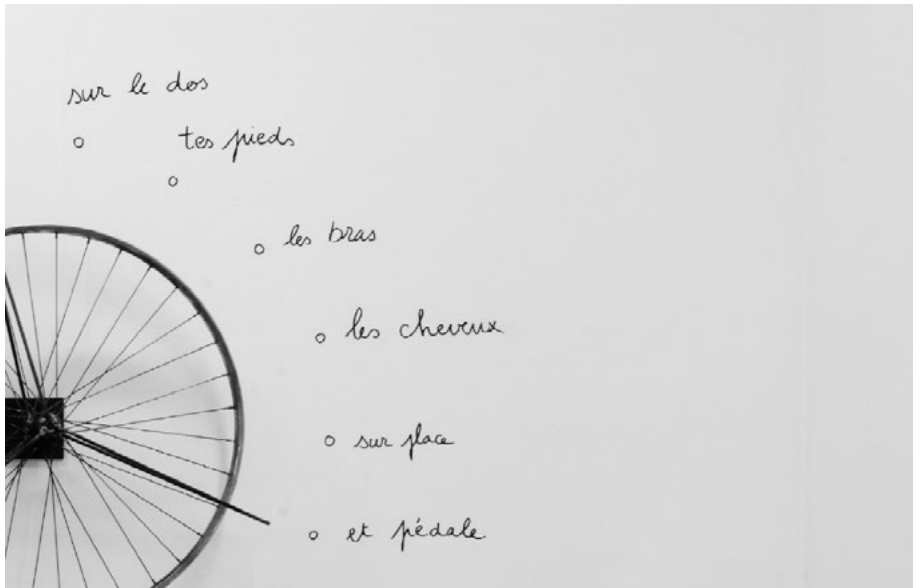 sur le dos
tes pieds
les bras
les cheveux
sur place
et pédale